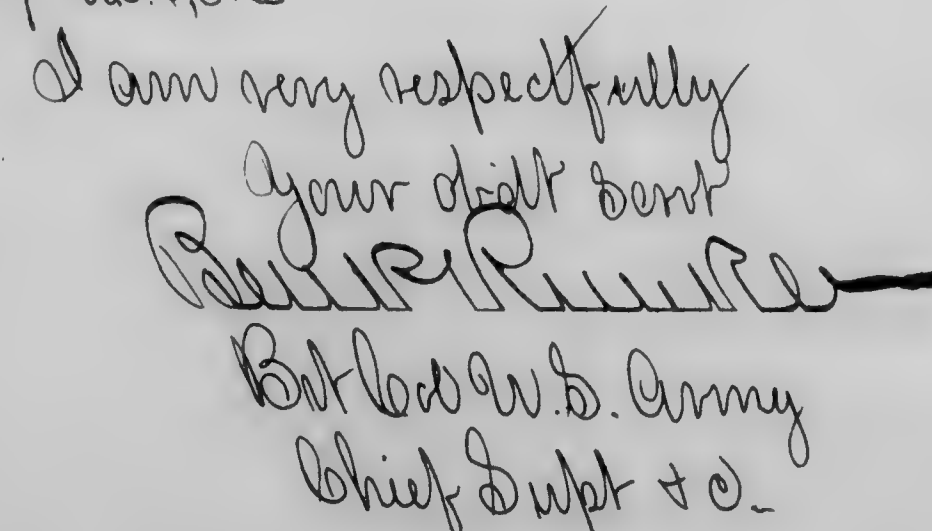 I am very respectfully
Your obdt Servt
Benj P Runkle
Bvt Col U.S. Army
Chief Supt & C.